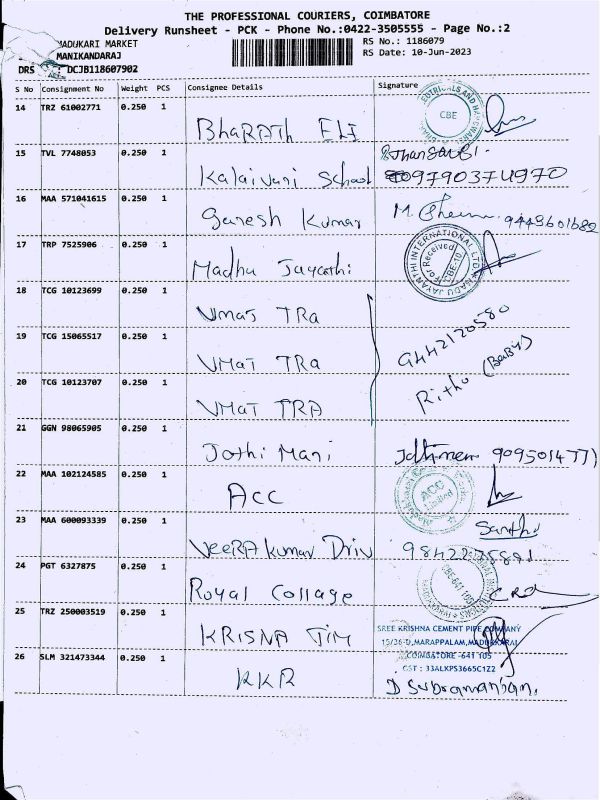 THE PROFESSIONAL COURIERS, COIMBATORE
Delivery Runsheet - PCK - Phone No.:0422-3505555 - Page No.:2
MADUKARI MARKET
RS No.: 1186079
MANIKANDARAJ
RS Date: 10-Jun-2023
DRS : DCJB118607902
S No Consignment No Weight PCS Consignee Details Signature
14 TRZ 61002771 0.250 1
CBE
BhARATh ELE
15 TVL 7748053 0.250 1
Kalaivani School 09790374970
16 MAA 571041615 0.250 1
Ganesh Kumar M. 9443601682
17 TRP 7525906 0.250 1
MADU JAYANTHI INTERNATIONAL LTD
For Received
CBE-10
Madhu Jayanthi
18 TCG 10123699 0.250 1
Vmat TRa
19 TCG 15065517 0.250 1
VMaT TRa
9442120580
20 TCG 10123707 0.250 1
Ritho (BaBy)
VMaT TRA
21 GGN 98065905 0.250 1
Jothi Mani Jothimani
22 MAA 102124585 0.250 1
ACC
Limited
ACC
23 MAA 600093339 0.250 1
Santho
VeeRA kumar Driv
24 PGT 6327875 0.250 1
CBE-641 105
Royal Collage
25 TRZ 250003519 0.250 1
KRISNA TIM
SREE KRISHNA CEMENT PIPE COMPANY
15/36-D, MARAPPALAM, MADUKKARAI
COIMBATORE -641 105
GST : 33ALXPS3665C1Z2
26 SLM 321473344 0.250 1
KKR D Subramanian.